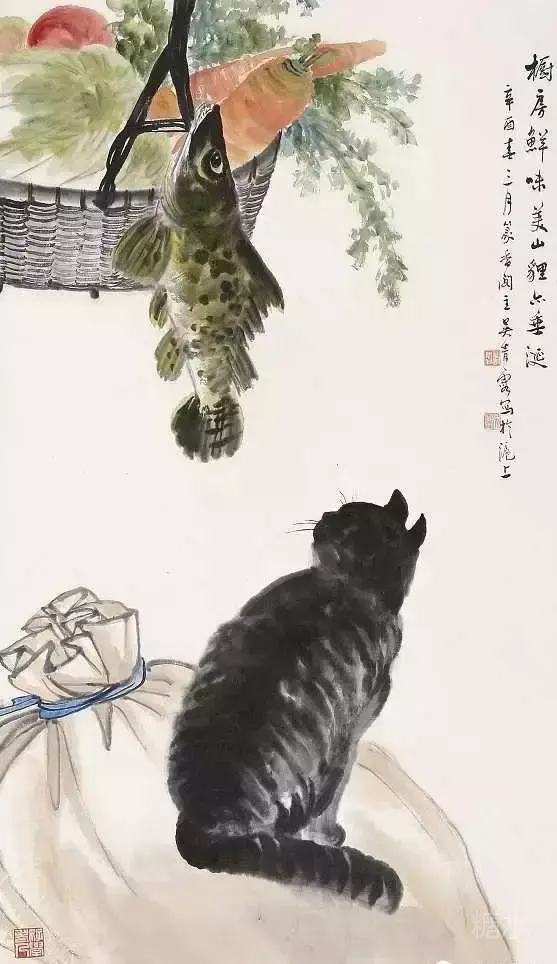 橱房鮮味美山貍亦垂涎
辛酉春三月篆香阁主吴青霞写於滬上